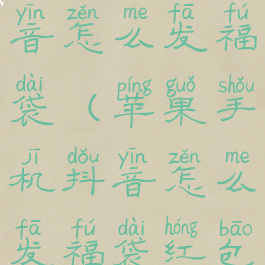 yīn zěn me fā fú
音怎么发福
dài píng guǒ shǒu
袋（苹果手
jī dǒu yīn zěn me
机抖音怎么
fā fú dài hóng bāo
发福袋红包